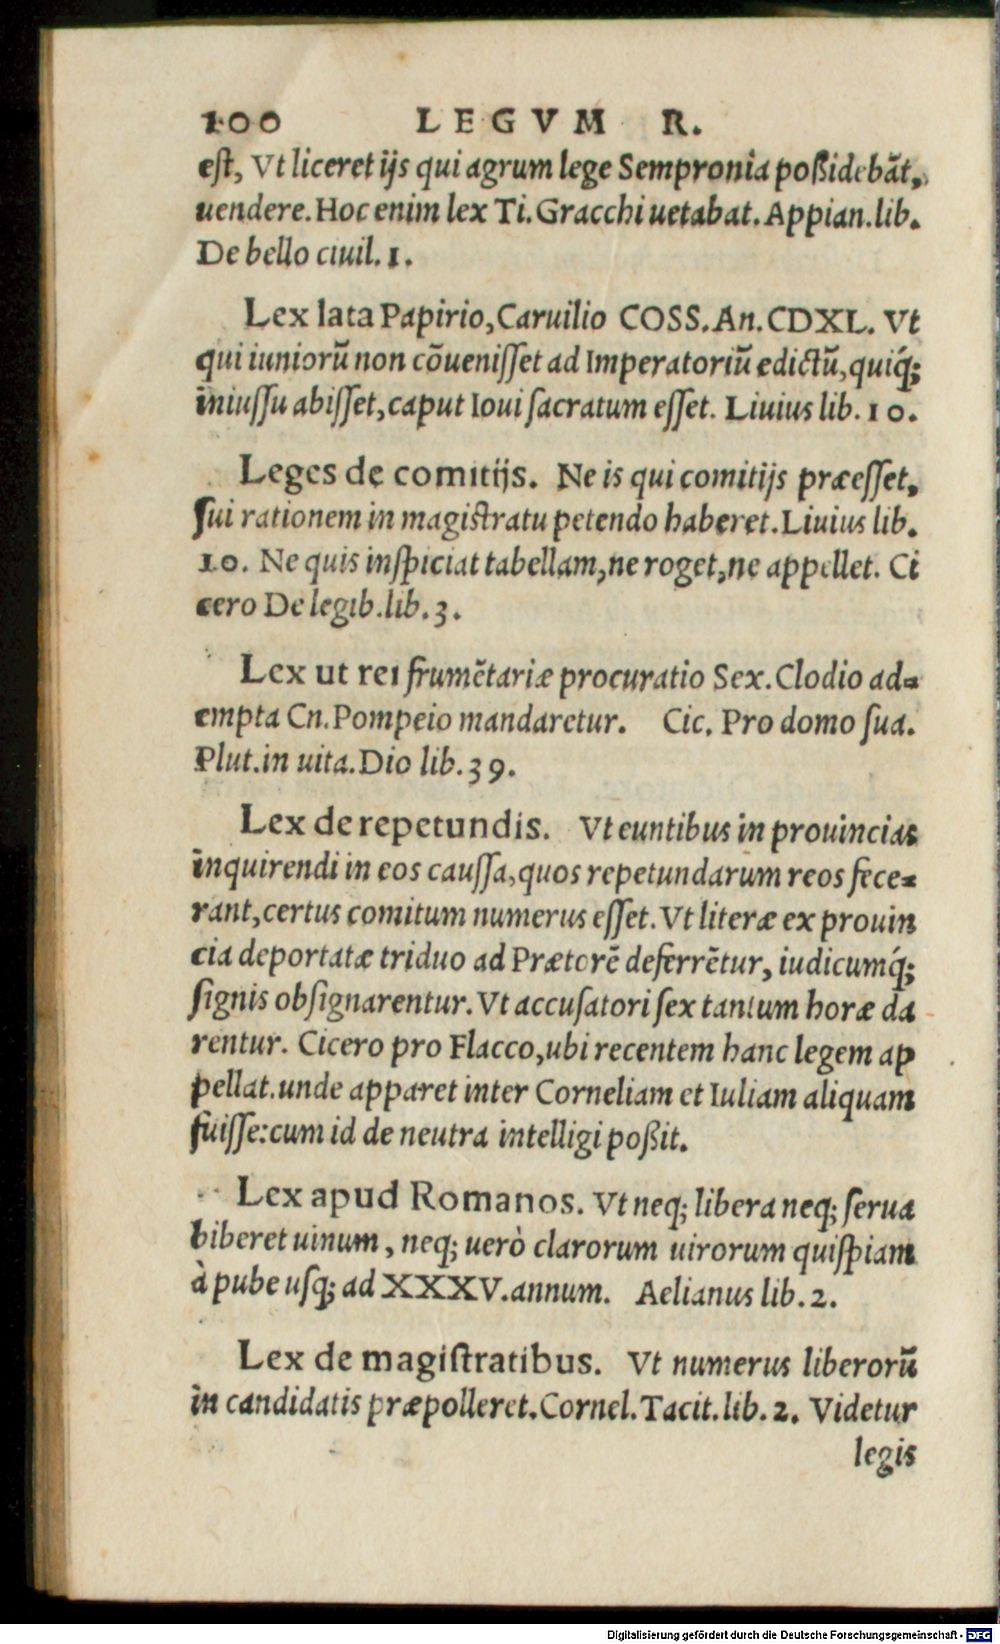 100 LEGVM R.
est, Vt liceret ijs qui agrum lege Sempronia poßidebāt,
uendere. Hoc enim lex Ti. Gracchi uetabat. Appian. lib.
De bello ciuil. 1.
Lex lata Papirio, Caruilio COSS. An. CDXL. Vt
qui iuniorū non cōuenisset ad Imperatoriū edictū, quiq́;
iniussu abisset, caput Ioui sacratum esset. Liuius lib. 10.
Leges de comitijs. Ne is qui comitijs præesset,
sui rationem in magistratu petendo haberet. Liuius lib.
10. Ne quis inspiciat tabellam, ne roget, ne appellet. Ci
cero De legib. lib. 3.
Lex ut rei frumētariæ procuratio Sex. Clodio ad-
empta Cn. Pompeio mandaretur. Cic. Pro domo sua.
Plut. in uita. Dio lib. 39.
Lex de repetundis. Vt euntibus in prouincias
inquirendi in eos caussa, quos repetundarum reos fece-
rant, certus comitum numerus esset. Vt literæ ex prouin
cia deportatæ triduo ad Prætorē deferrētur, iudicumq́;
signis obsignarentur. Vt accusatori sex tantum horæ da
rentur. Cicero pro Flacco, ubi recentem hanc legem ap
pellat. unde apparet inter Corneliam et Iuliam aliquam
fuisse: cum id de neutra intelligi poßit.
Lex apud Romanos. Vt neq; libera neq; serua
biberet uinum, neq; uerò clarorum uirorum quispiam
à pube usq; ad XXXV. annum. Aelianus lib. 2.
Lex de magistratibus. Vt numerus liberorū
in candidatis præpolleret. Cornel. Tacit. lib. 2. Videtur
legis
Digitalisierung gefördert durch die Deutsche Forschungsgemeinschaft - DFG